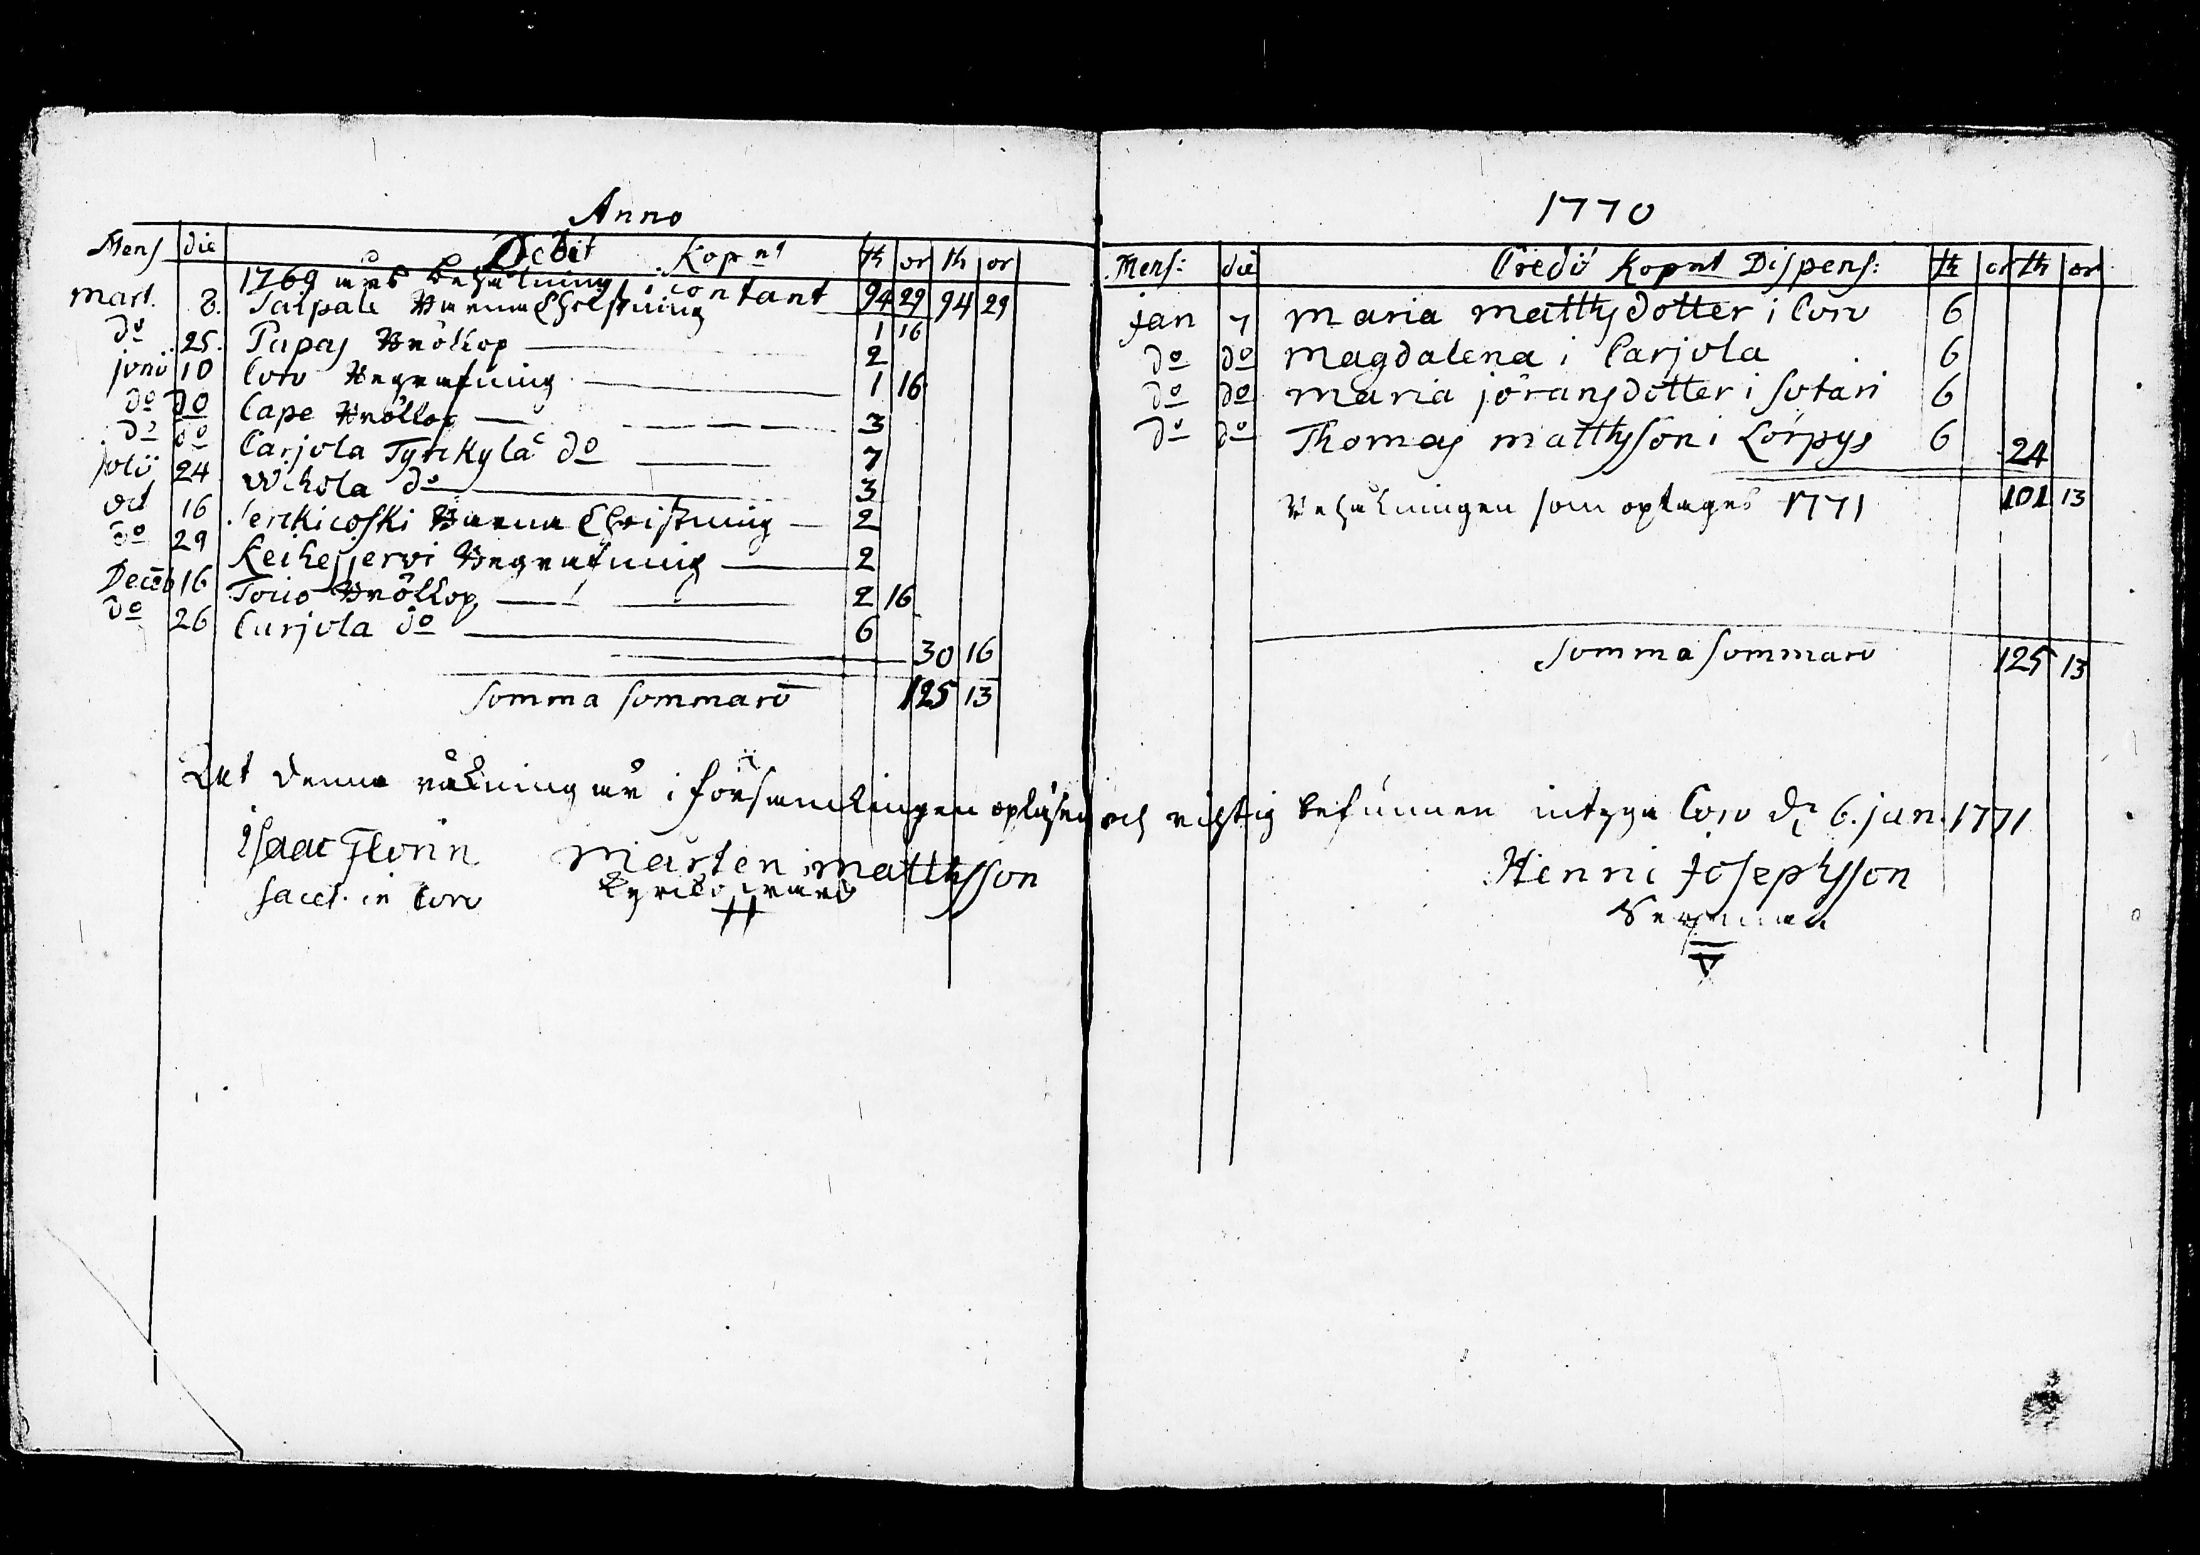 Anno
Mens die Debit Kopnt th or th or
1769 års behålning contant 94 29 94 29
Mart. 8. Salpala Barna Christning 1 16
do 25. Papas Bröllop 2
junii 10 Coro Begrafning 1 16
do do Cape Bröllop 3
do do Carjola Tyrkylä do 7
julii 24 Wihola do 3
oct 16 Serkikoski Barna Christning 2
do 29 Keihesjervi Begrafning 2
Decēb 16 Toiio Bröllop 2 16
do 26 Carjola do 6
30 16
Somma Sommarū 125 13
1770
Mens: die Credit Kopnt Dispens: th or th or
jan 7 Maria Matthsdotter i Coro 6
do do Magdalena i Carjola 6
do do Maria jöransdotter i Sotari 6
do do Thomas Matthsson i Lörpys 6 24
Behålningen som optages 1771 101 13
Somma Sommarū 125 13
Dat denna räkning är i församlingen opläsen och richtig befunnen intyga Coro d: 6. jan. 1771
Isaac Florin Mårten Matthsson Henric Josephsson
Sacel. in Coro Kyrko ward Sexman